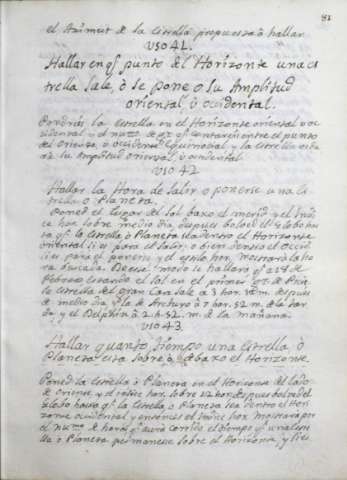 81
el Azimut de la Estrella propuesta ò hallar
VSO 41.
Hallar en q.e punto del Horizonte una es
trella Sale, ò se pone o su Amplitud
oriental ò ocidental.
Pondràs la Estrella en el Horizonte oriental ò oc
cidental y el num.o de q.e contaràs entre el punto
del Oriente, ò occidente Equinocial y la Estrella
la Amplitud oriental, ò ocidental.
VSO 42
Hallar la Hora de Salir o ponerse una Es
trella o Planeta.
Poned el lugar del Sol baxo el merid. y el Indi
ce hor. sobre medio dia, despues bolved el Globo ha
ta q.e la Estrella ò Planeta sea dentro el Horizonte
oriental si es para el Salir; o bien dentro el Occid.
si es para el ponerse y el hor. mostrarà la ho
ra buscada. De ese modo se hallara q.e a 18 de
Febrero estando el Sol en el primer de
la Estrella del gran Can sale a 3 hor. m. despues
de medio dia y la de Arcturo à 7 hor. 52 m. de la tar
de y el Delphin à 2 h. 52 m. de la mañana.
VSO 43
Hallar quanto tiempo una Estrella ò
Planeta esta sobre ò debaxo el Horizonte.
Poned la estrella ò Planeta en el Horizonte del lado
de Oriente, y el indice hor. sobre 12 hor. despues bolved el
Globo hasta q.e la Estrella, o Planeta sea dentro el Hori
zonte occidental y entonces el indice hor. mostrarà por
el num.o de horas q.e aurà corrido el tiempo q.e una estre
lla ò Planeta permanese sobre el Horizonte, y si es